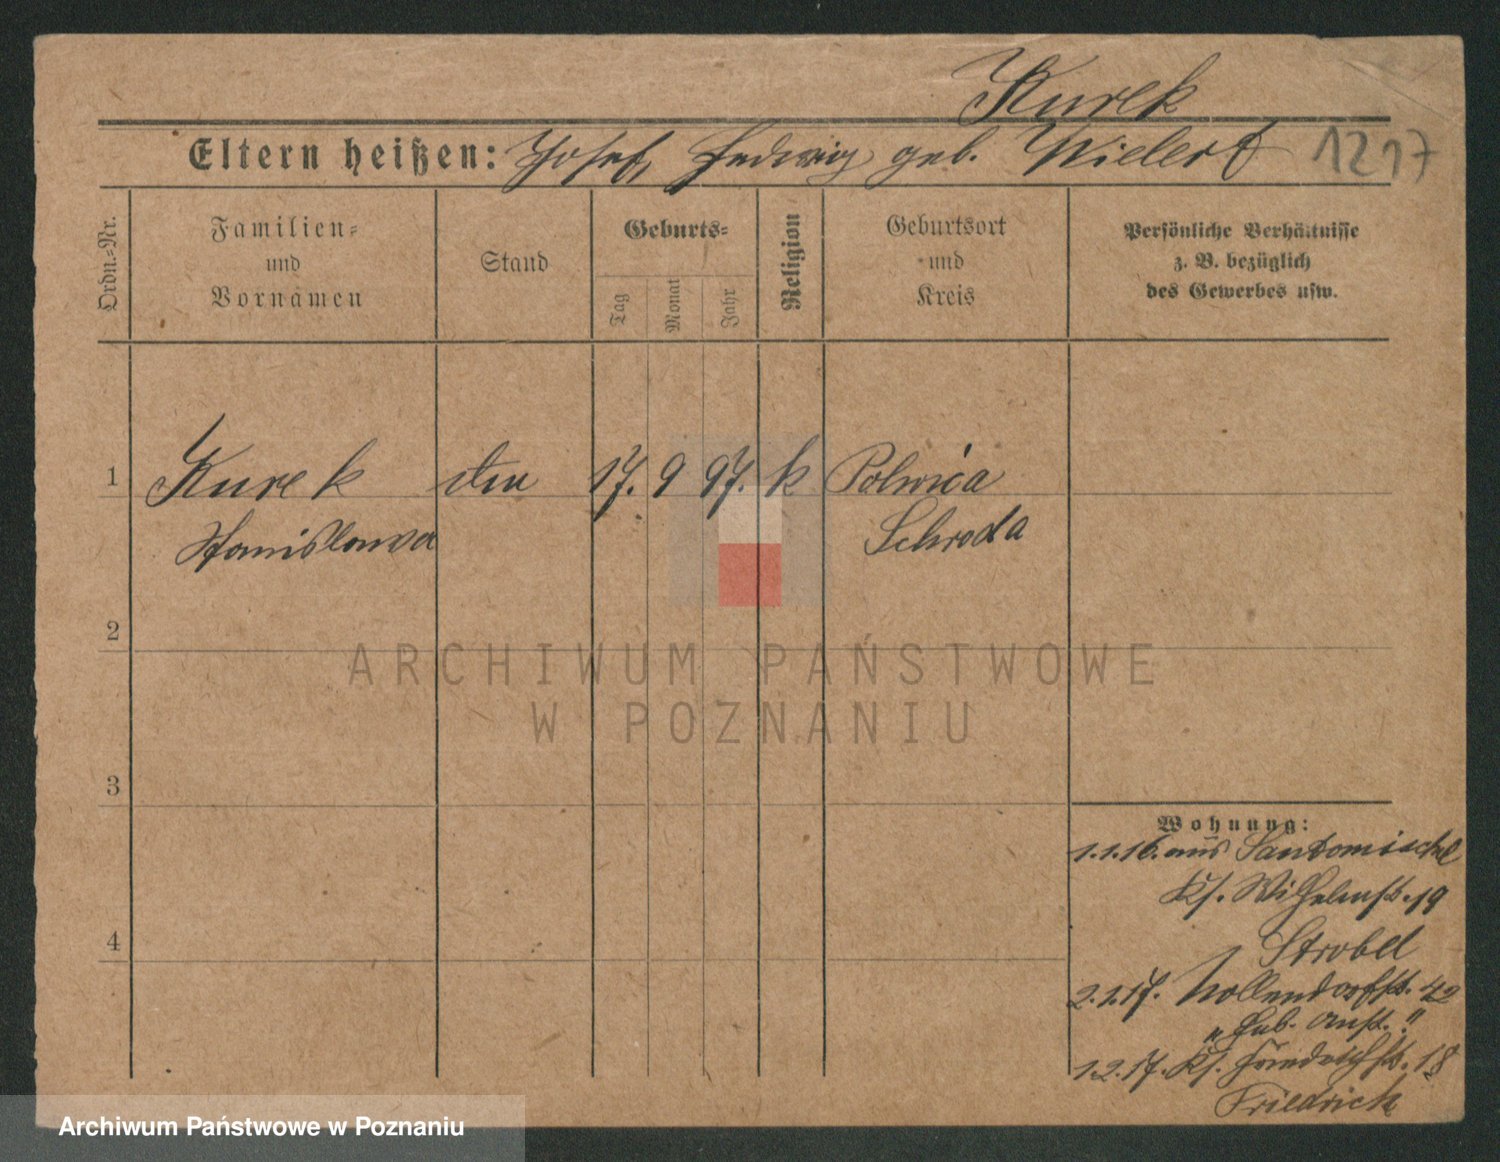 Kurek
Eltern heißen: Josef, Hedwig geb. Wielert 1217
Ordn.-Nr.
Familien-
und
Vornamen
Stand
Geburts-
Tag
Monat
Jahr
Religion
Geburtsort
und
Kreis
Persönliche Verhältnisse
z. B. bezüglich
des Gewerbes usw.
1 Kurek 17. 9 97. k Polwica
Stanislawa Schroda
2
ARCHIWUM PAŃSTWOWE
W POZNANIU
3
Wohnung:
1.1.16. aus Santomischel
Ks. Wilhelmst. 19
Strobel
4
2.1.17. Nollendorfst. 42
"Heb. Anst."
1.2.17. Ks. Friedrichst. 18
Friedrich
Archiwum Państwowe w Poznaniu